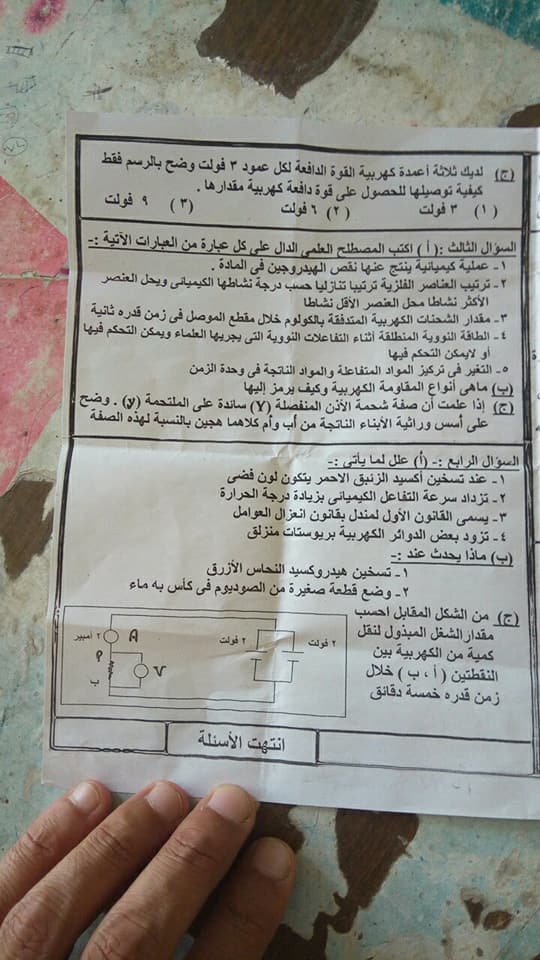 (ج) لديك ثلاثة أعمدة كهربية القوة الدافعة لكل عمود ٣ فولت وضح بالرسم فقط
كيفية توصيلها للحصول على قوة دافعة كهربية مقدارها .
(١) ٣ فولت (٢) ٦ فولت (٣) ٩ فولت
السؤال الثالث :( أ ) اكتب المصطلح العلمى الدال على كل عبارة من العبارات الآتية :-
١- عملية كيميائية ينتج عنها نقص الهيدروجين فى المادة .
٢- ترتيب العناصر الفلزية ترتيبا تنازليا حسب درجة نشاطها الكيميائى ويحل العنصر
الأكثر نشاطا محل العنصر الأقل نشاطا
٣- مقدار الشحنات الكهربية المتدفقة بالكولوم خلال مقطع الموصل فى زمن قدره ثانية
٤- الطاقة النووية المنطلقة أثناء التفاعلات النووية التى يجريها العلماء ويمكن التحكم فيها
أو لايمكن التحكم فيها
٥- التغير فى تركيز المواد المتفاعلة والمواد الناتجة فى وحدة الزمن
(ب) ماهى أنواع المقاومة الكهربية وكيف يرمز إليها
(ج) إذا علمت أن صفة شحمة الأذن المنفصلة (Y) سائدة على الملتحمة (y) . وضح
على أسس وراثية الأبناء الناتجة من أب وأم كلاهما هجين بالنسبة لهذه الصفة
السؤال الرابع :- (أ) علل لما يأتى :-
١- عند تسخين أكسيد الزئبق الاحمر يتكون لون فضى
٢- تزداد سرعة التفاعل الكيميائى بزيادة درجة الحرارة
٣- يسمى القانون الأول لمندل بقانون انعزال العوامل
٤- تزود بعض الدوائر الكهربية بريوستات منزلق
(ب) ماذا يحدث عند :-
١- تسخين هيدروكسيد النحاس الأزرق
٢- وضع قطعة صغيرة من الصوديوم فى كأس به ماء
(ج) من الشكل المقابل احسب
مقدار الشغل المبذول لنقل
كمية من الكهربية بين
النقطتين ( أ ، ب ) خلال
زمن قدره خمسة دقائق
٢ فولت
٢ فولت
٢ أمبير
A
V
ب
انتهت الأسئلة